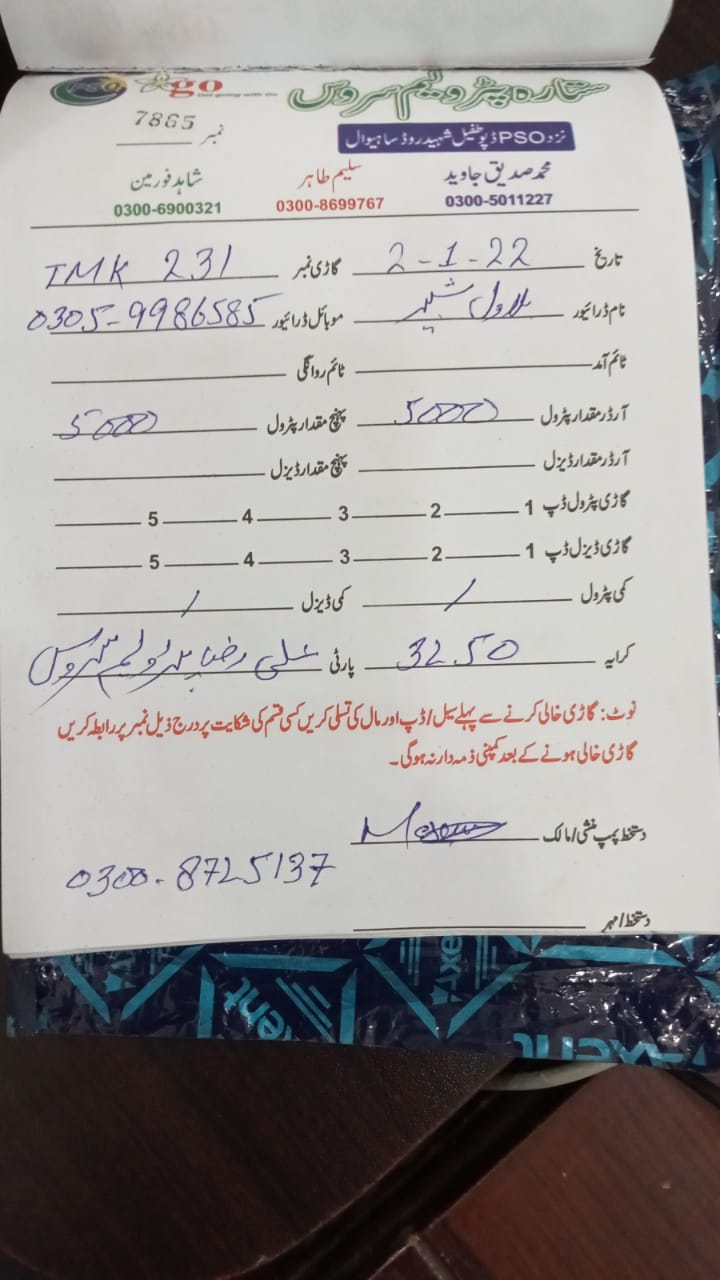 PSO go ستارہ پٹرولیم سروس
نمبر 7865
نزد PSO ڈپو طفیل شہید روڈ ساہیوال
محمد صدیق جاوید سلیم طاہر شاہد فورمین
0300-5011227 0300-8699767 0300-6900321
تاریخ 2-1-22 گاڑی نمبر TMK 231
نام ڈرائیور بلاول شبیر موبائل ڈرائیور 0305-9986585
ٹائم آمد ٹائم روانگی
آرڈر مقدار پٹرول 5000 پہنچ مقدار پٹرول 5000
آرڈر مقدار ڈیزل پہنچ مقدار ڈیزل
گاڑی پٹرول ڈپ 1 2 3 4 5
گاڑی ڈیزل ڈپ 1 2 3 4 5
کمی پٹرول / کمی ڈیزل /
کرایہ 32.50 پارٹی علی رضا پٹرولیم سروس
نوٹ: گاڑی خالی کرنے سے پہلے سیل/ڈپ اور مال کی تسلی کریں کسی قسم کی شکایت پر درج ذیل نمبر پر رابطہ کریں
گاڑی خالی ہونے کے بعد کمپنی ذمہ دار نہ ہوگی۔
دستخط پمپ منشی/مالک
0300-8725137
دستخط/مہر